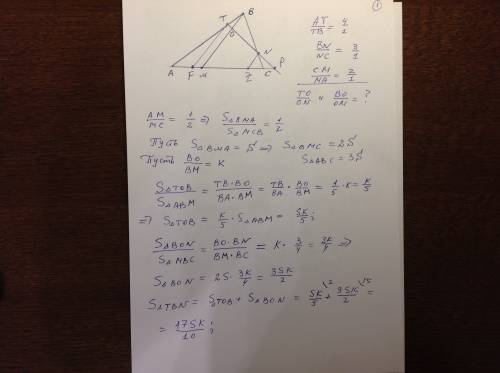 1
B
T
O
N
P
A
F
M
Z
C
AT/TB = 4/1
BN/NC = 3/1
CM/MA = 2/1
TO/ON и BO/OM = ?
AM/MC = 1/2 => S△BMA/S△MCB = 1/2
Пусть S△BMA = S => S△BMC = 2S
S△ABC = 3S
Пусть BO/BM = K
S△TOB/S△ABM = TB·BO/BA·BM = TB/BA · BO/BM = 1/5 · K = K/5
=> S△TOB = K/5 · S△ABM = SK/5;
S△BON/S△MBC = BO·BN/BM·BC = K · 3/4 = 3K/4 =>
S△BON = 2S · 3K/4 = 3SK/2
S△TBN = S△TOB + S△BON = SK/5 \2 + 3SK/2 \5 =
= 17SK/10;